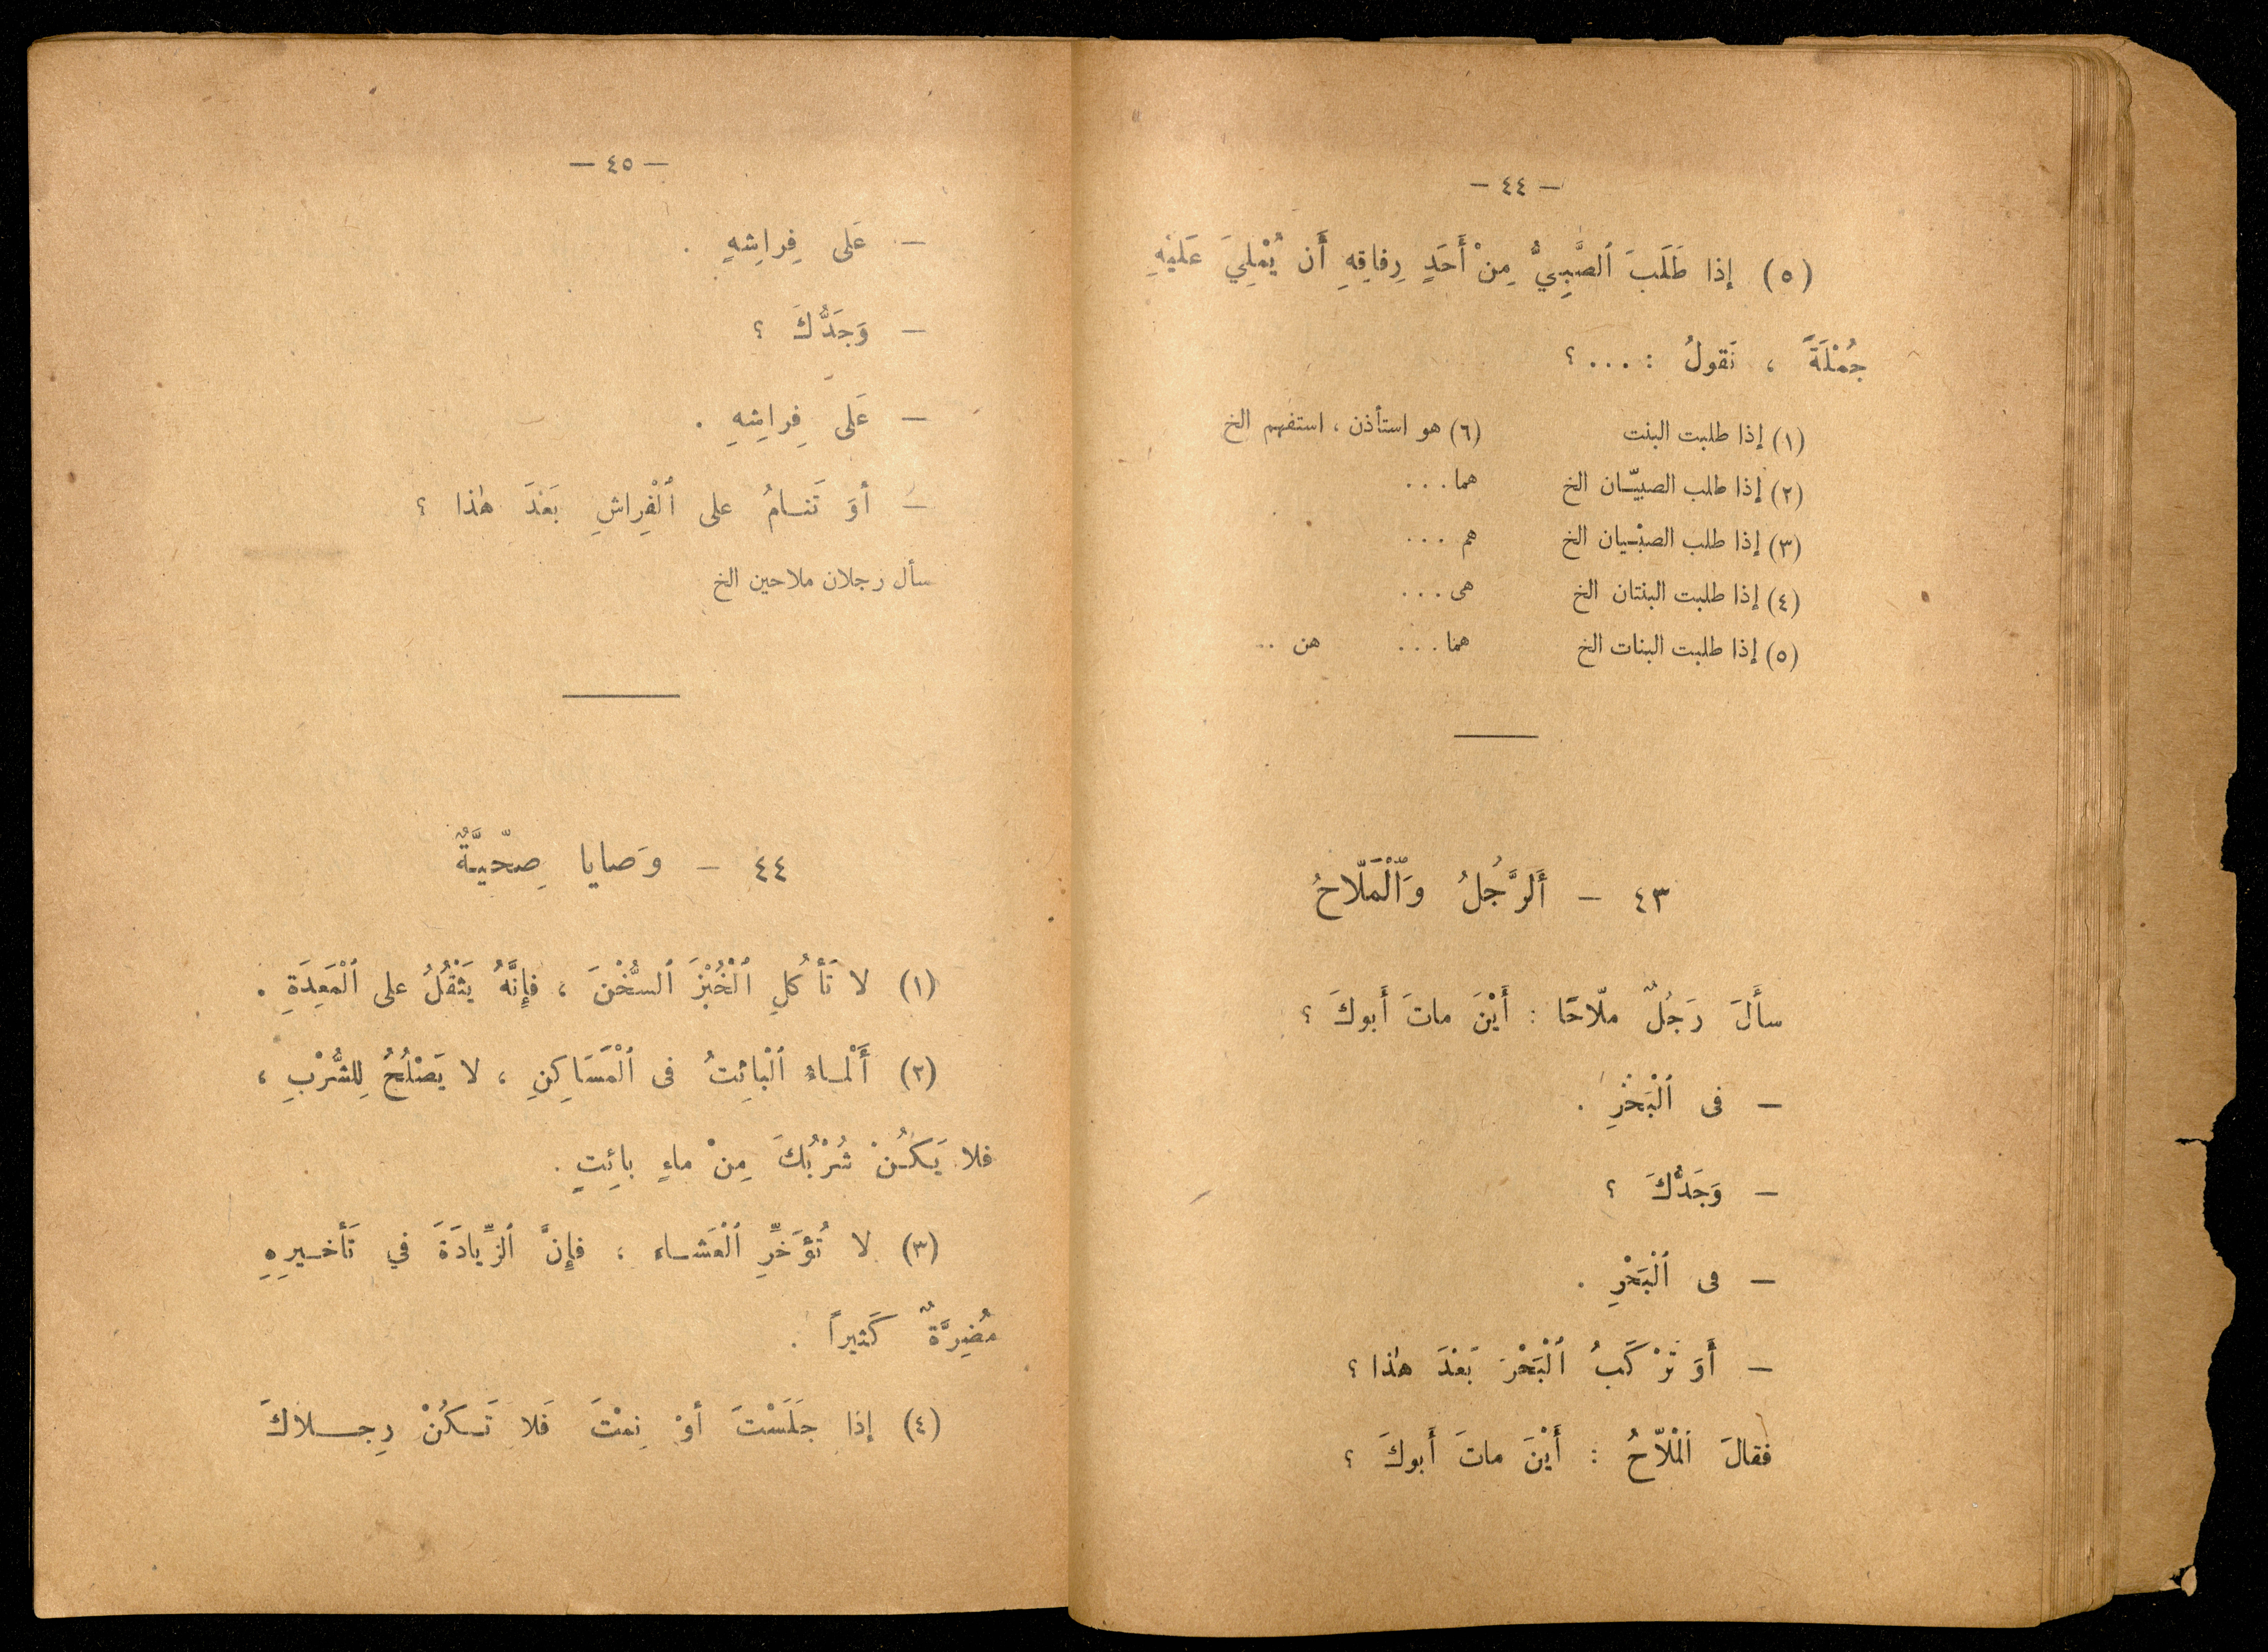 — ٤٤ —
(٥) إذا طَلَبَ ٱلصَّبِيُّ مِنْ أَحَدِ رِفاقِهِ أَن يُمْلِيَ عَلَيْهِ
جُمْلَةً ، نَقولُ : . . . ؟
(١) إذا طلبت البنت (٦) هو استأذن ، استفهم الخ
(٢) إذا طلب الصبيّان الخ هما . . .
(٣) إذا طلب الصبْيان الخ هم . . .
(٤) إذا طلبت البنتان الخ هى . . .
(٥) إذا طلبت البنات الخ هما . . . هن ..
٤٣ — أَلرَّجُلُ وَٱلْمَلّاحُ
سأَلَ رَجُلٌ ملّاحًا : أَيْنَ ماتَ أَبوكَ ؟
— فى ٱلْبَحْرِ .
— وَجَدُّكَ ؟
— فى ٱلْبَحْرِ .
— أَوَ تَرْكَبُ ٱلْبَحْرَ بَعْدَ هٰذا ؟
فقالَ ٱلْملّاحُ : أَيْنَ ماتَ أَبوكَ ؟
— ٤٥ —
— عَلى فِراشِهِ .
— وَجَدُّكَ ؟
— عَلى فِراشِهِ .
— أوَ تَنامُ على ٱلْفِراشِ بَعْدَ هٰذا ؟
سأل رجلان ملاحين الخ
٤٤ — وَصايا صِحّيَّةٌ
(١) لا تَأْكُلِ ٱلْخُبْزَ ٱلسُّخْنَ ، فإِنَّهُ يَثْقُلُ على ٱلْمَعِدَةِ .
(٢) أَلْماءُ ٱلْبائِتُ فى ٱلْمَسَاكِنِ ، لا يَصْلُحُ لِلشُّرْبِ ،
فلا يَكُنْ شُرْبُكَ مِنْ ماءٍ بائِتٍ .
(٣) لا تُؤَخِّرِ ٱلْعَشاء ، فإِنَّ ٱلزِّيادَةَ في تَأْخيرِهِ
مُضِرَّةٌ كَثيراً .
(٤) إذا جَلَسْتَ أوْ نِمْتَ فَلا تَكُنْ رِجلاكَ